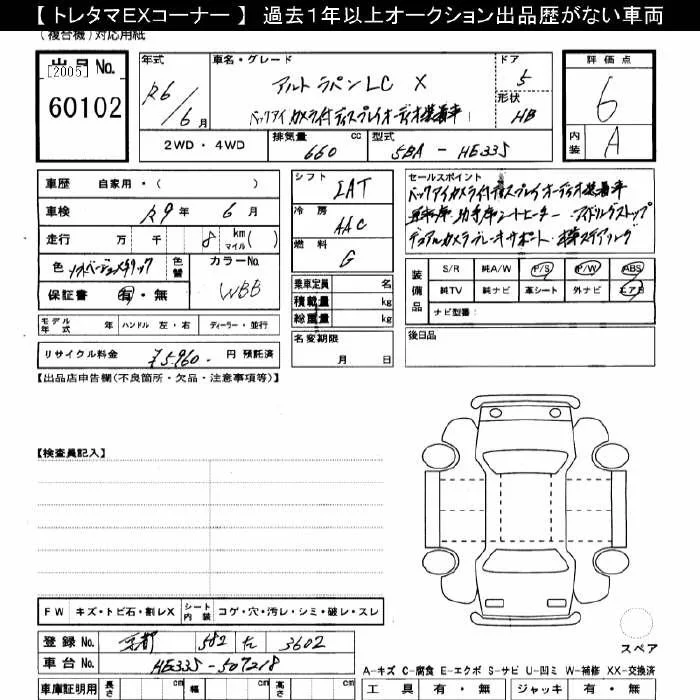 【 トレタマEXコーナー 】 過去1年以上オークション出品歴がない車両
(複合機)対応用紙
出品 No.
[2005]
60102
年式
R6/6月
車名・グレード
アルトラパンLC X
バックアイカメラ付ディスプレイオーディオ装着車
ドア
5
形状
HB
評価点
6
内装
A
2WD・4WD
排気量 660 cc
型式 5BA - HE33S
車歴 自家用・( )
車検 R9年 6月
走行 万 千 8 km マイル( )
色
色替
カラーNo.
WBB
保証書 有・無
モデル年式 年 ハンドル 左・右 ディーラー・並行
リサイクル料金 ¥5960- 円 預託済
シフト
IAT
冷房
AAC
燃料
G
乗車定員 名
積載量 kg
総重量 kg
名変期限
月 日
セールスポイント
バックアイカメラ付ディスプレイオーディオ装着車
運転席・助手席シートヒーター アイドリングストップ
デュアルカメラブレーキサポート 革ステアリング
装備品
S/R 純A/W P/S P/W ABS
純TV 純ナビ 革シート 外ナビ エアB
ナビ型番:
後日品
【出品店申告欄(不良箇所・欠品・注意事項等)】
【検査員記入】
FW キズ・トビ石・割レX シート内装 コゲ・穴・汚レ・シミ・破レ・スレ
登録 No. 京都 582 た 3602
車台 No. HE33S-507218
車庫証明用 長さ cm 幅 cm 高さ cm
スペア
A-キズ C-腐食 E-エクボ S-サビ U-凹ミ W-補修 XX-交換済
工具 有・無 ジャッキ 有・無